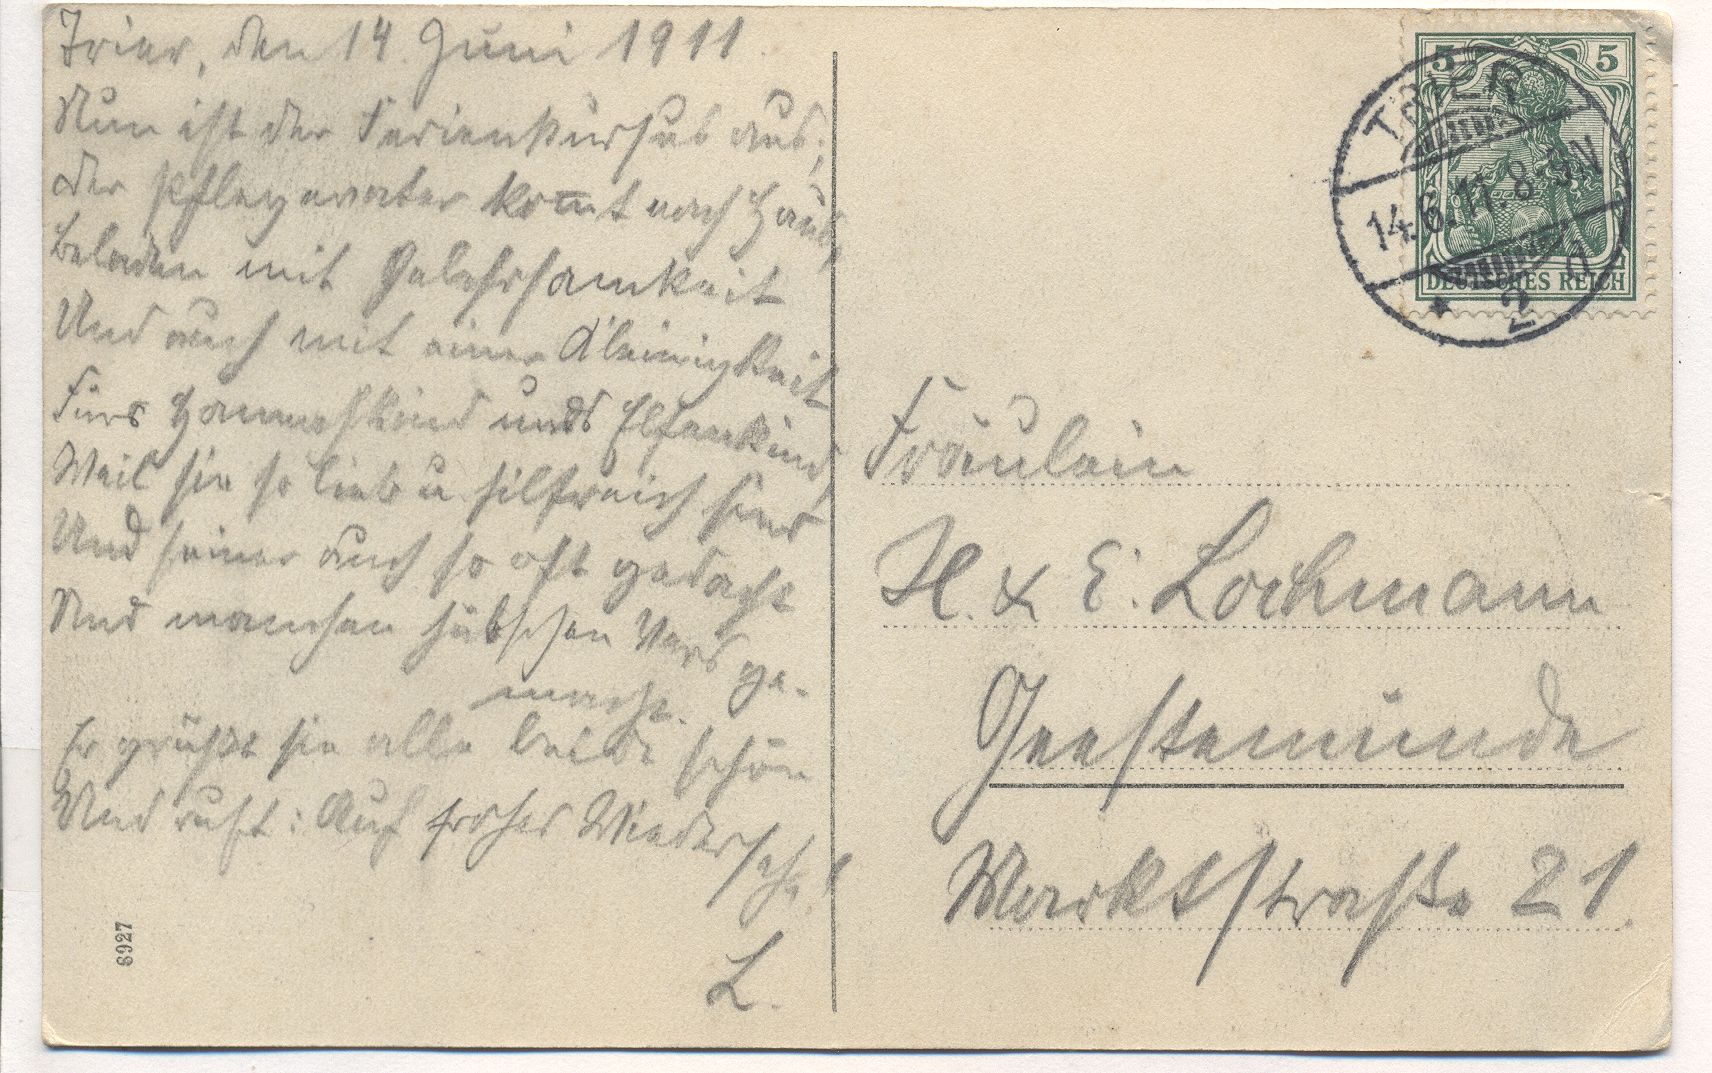 Trier, den 14. Juni 1911.
Nun ist der Ferienkursus aus,
der Pflegevater kom̅t nach Haus,
Beladen mit Gelehrsamkeit
Und auch mit einer Kleinigkeit
Fürs Hannahkind und's Elsenkind,
Weil sie so lieb u hilfreich sind
Und seiner auch so oft gedacht
Und manchen hübschen Vers ge-
macht.
Er grüßt sie alle beide schön
Und ruft: Auf frohes Wiedersehn!
L.
6927
5 5
DEUTSCHES REICH
TRIER
14.6.11.8-9N
* 2 a
Fräulein
H. & E. Lochmann
Geestemünde
Marktstraße 21.